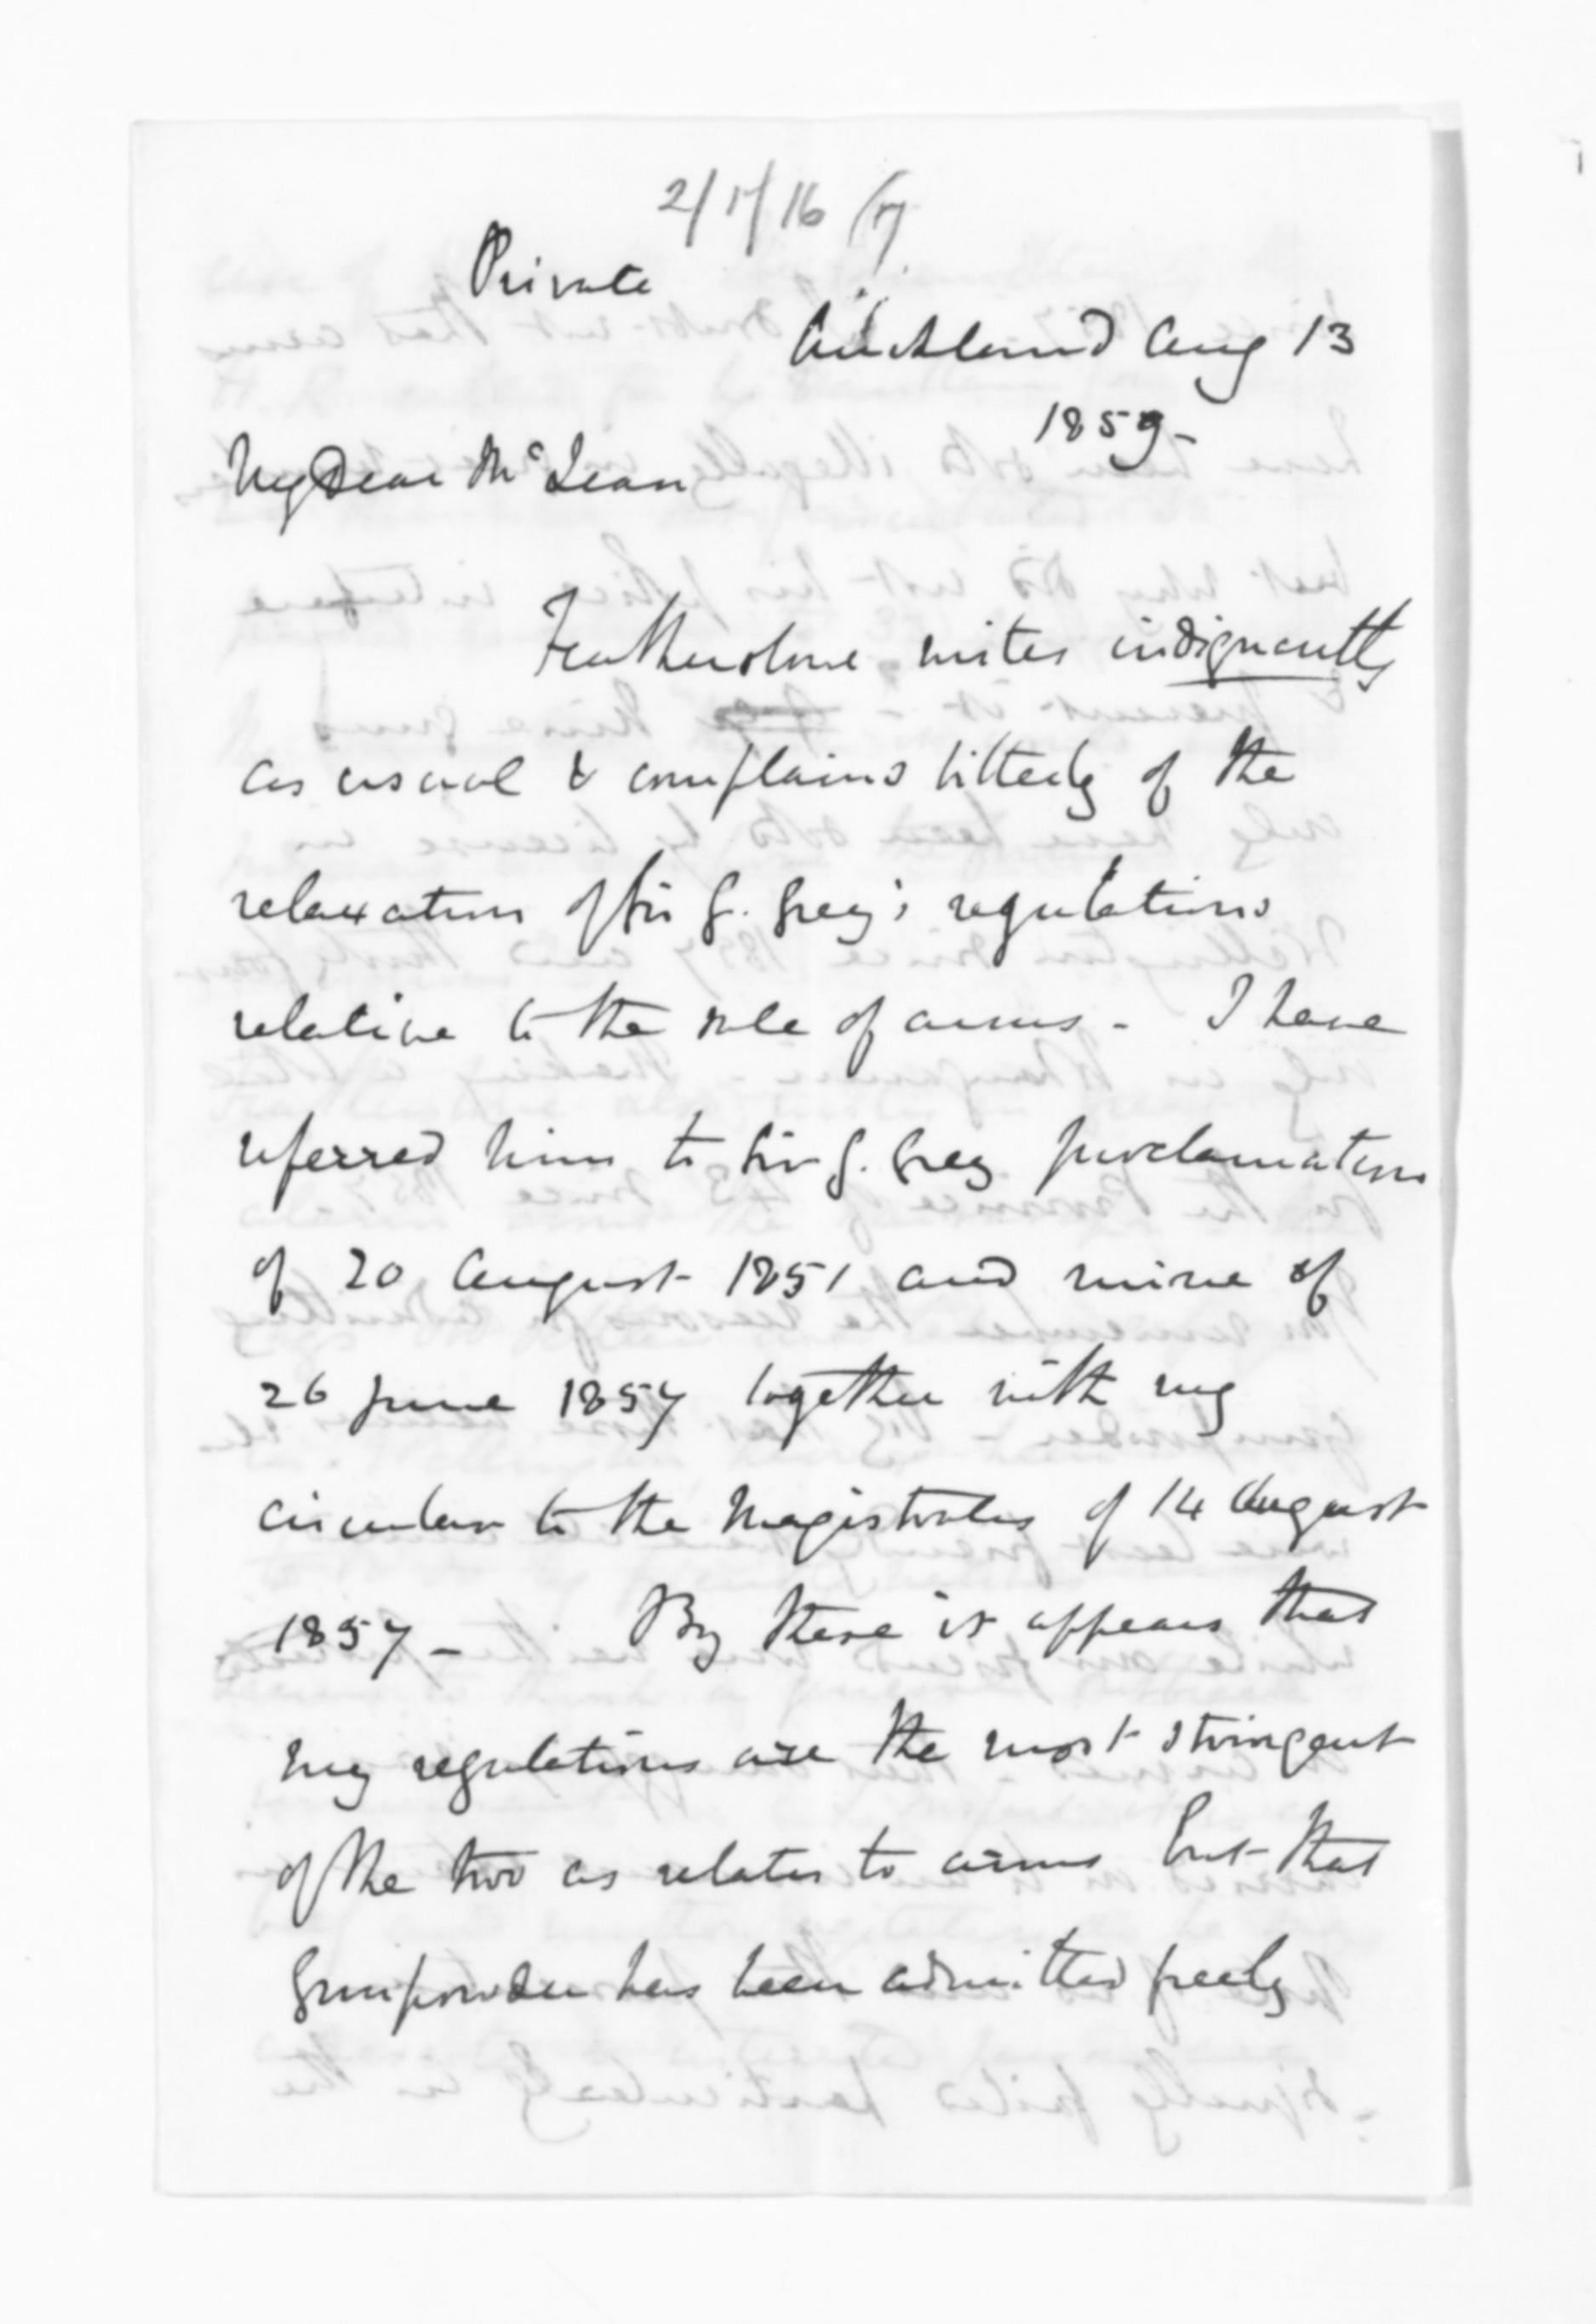 Private
Auckland Aug 13
1859-
My Dear McLean
Featherstone writes indignantly
as usual & complains bitterly of the
relaxation of Sir G. Grey's regulations
relative to the sale of arms - I have
referred him to Sir G. Grey proclamation
of 20 August 1851 and mine of
26 June 1857 together with my
circular to the Magistrates of 14 August
1857 - By these it appears that
my regulations are the most stringent
of the two as relates to arms but that
Gunpowder has been admitted freely